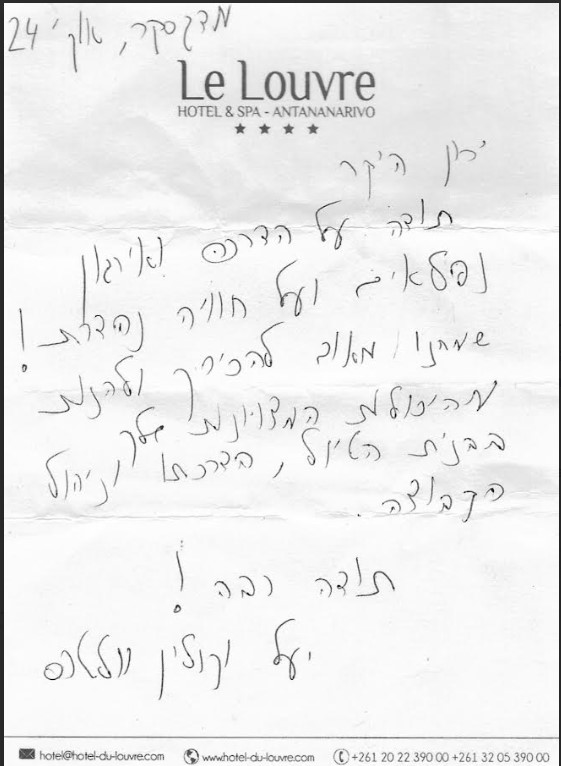 מדגסקר, אוק' 24'
Le Louvre
HOTEL & SPA - ANTANANARIVO
ירון היקר
תודה על הדרכה ואירגון
נפלאים ועל חוויה נהדרת!
שמחנו מאוד להכירך ולהנות
מהיכולות המצוינות שלך
בבנית הטיול, הדרכתו וניהול
הקבוצה.
תודה רבה!
יעל וקולין
hotel@hotel-du-louvre.com www.hotel-du-louvre.com +261 20 22 390 00 +261 32 05 390 00